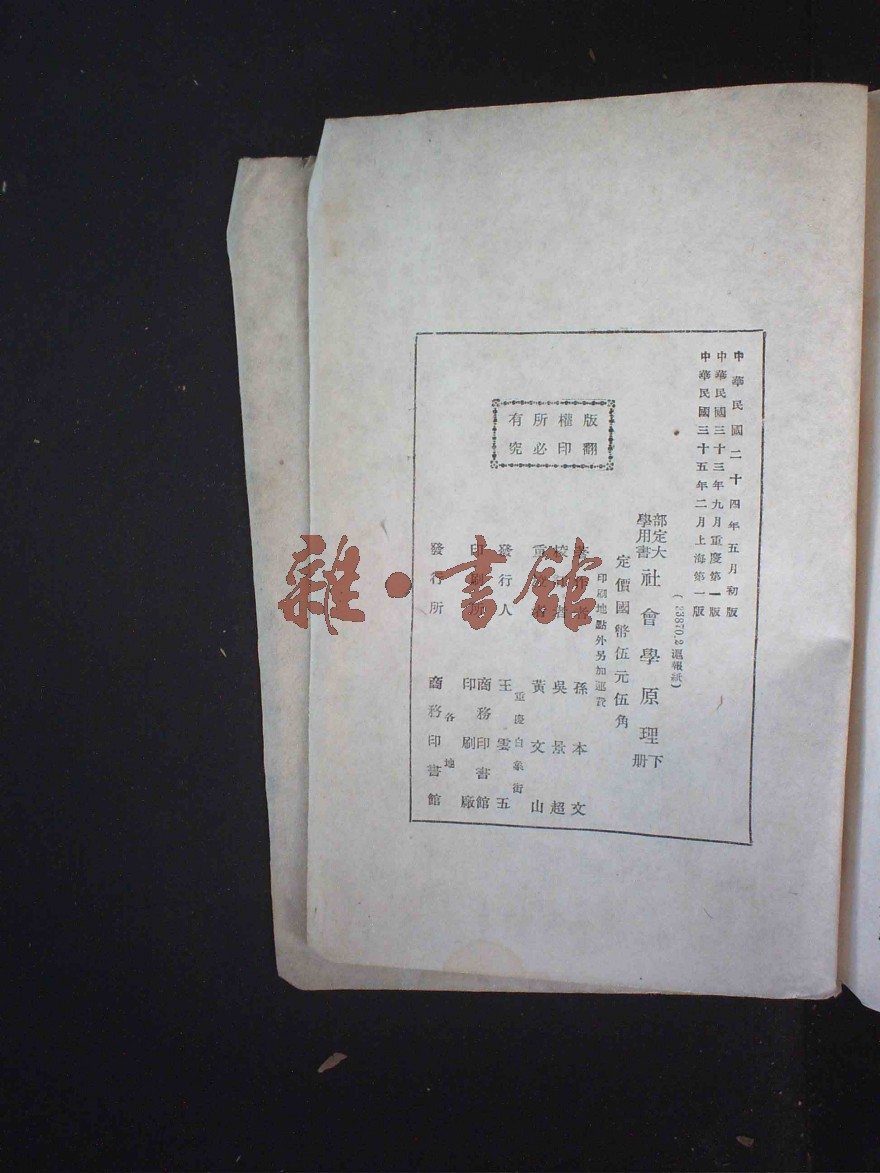 中華民國二十四年五月初版
中華民國三十三年九月重慶第一版
中華民國三十五年二月上海第一版
(23870.2 滬報紙)
部定大學用書 社會學原理 下册
定價國幣伍元伍角
印刷地點外另加運費
版權所有
翻印必究
著作者 孫本文
校 者 吳景超
重 者 黃文山
重慶白象街
發行人 王雲五
印刷所 商務印書館印刷廠
各地
發行所 商務印書館
雜·書館